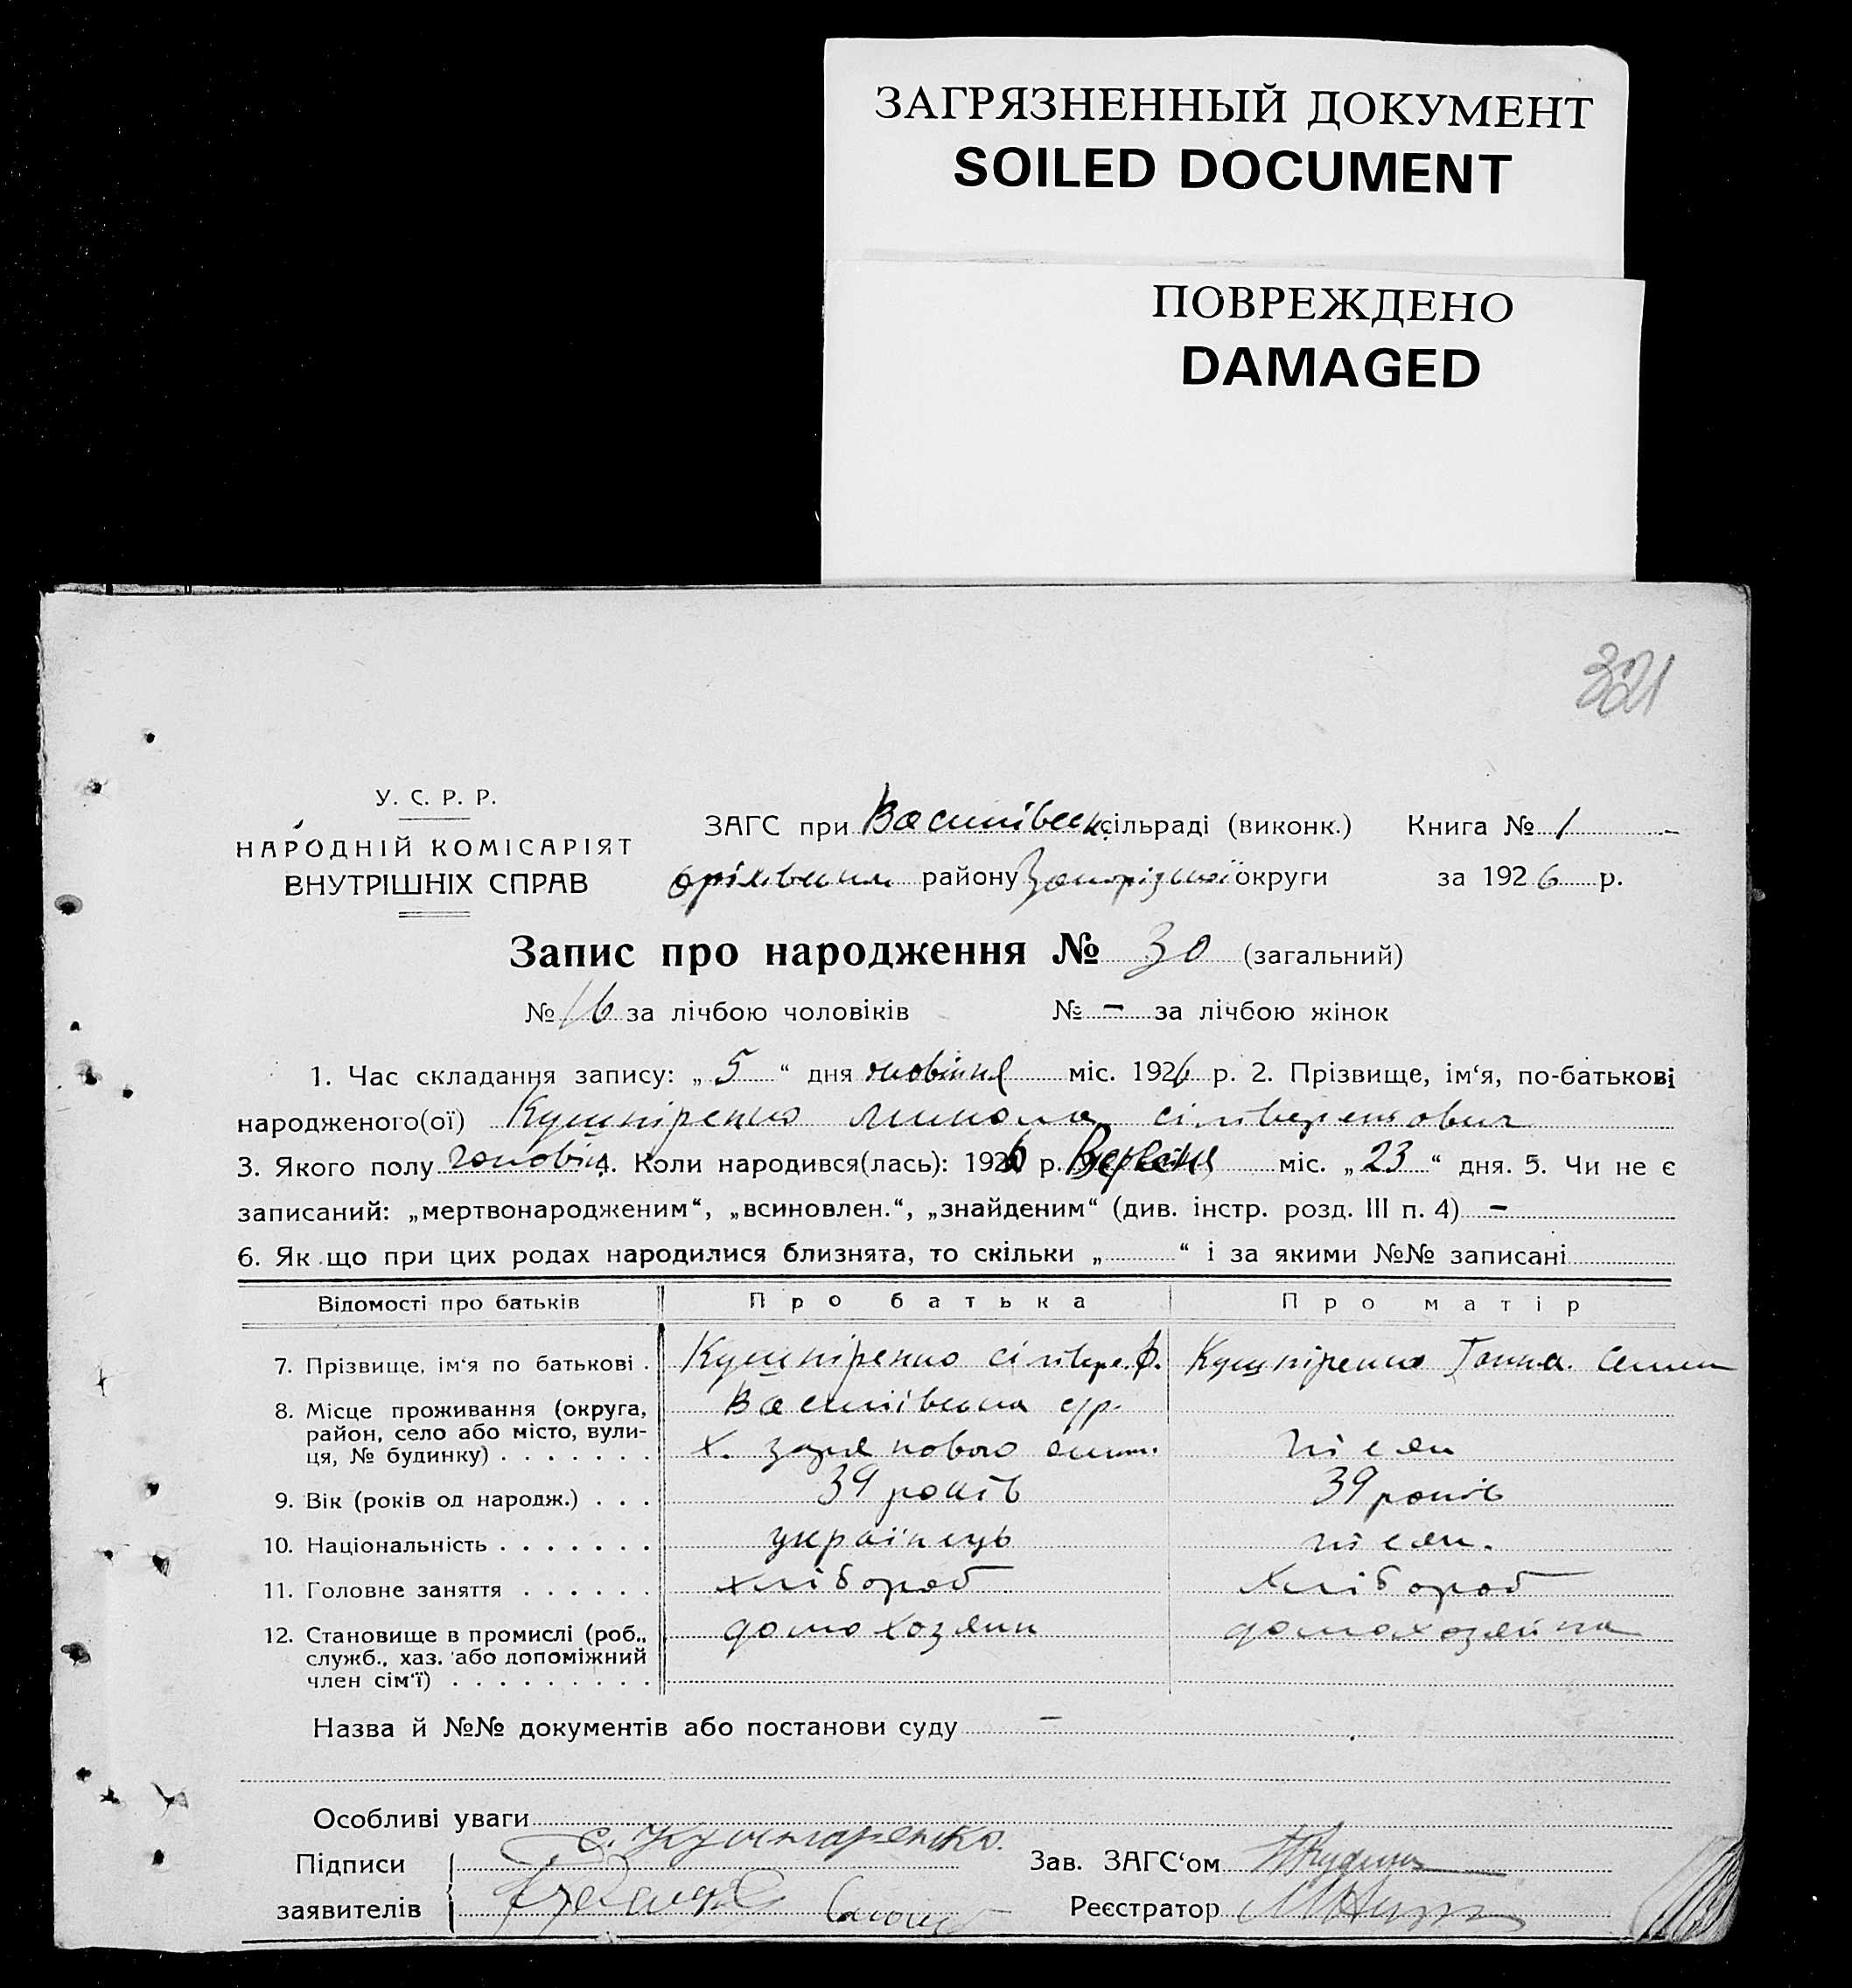 ЗАГРЯЗНЕННЫЙ ДОКУМЕНТ
SOILED DOCUMENT
ПОВРЕЖДЕНО
DAMAGED
321
У. С. Р. Р.
НАРОДНІЙ КОМІСАРІЯТ
ВНУТРІШНІХ СПРАВ
ЗАГС при Василівськ. сільраді (виконк.) Книга № 1
оріхівськ. району Запорізької округи за 1926 р.
Запис про народження № 30 (загальний)
№ 16 за лічбою чоловіків № - за лічбою жінок
1. Час складання запису: „ 5 “ дня жовтня міс. 1926 р. 2. Прізвище, ім‘я, по-батькові
народженого(ої) Кушніренко Микола сілівертович
3. Якого полу чоловіч. 4. Коли народився(лась): 1926 р. Вересня міс. „ 23 “ дня. 5. Чи не є
записаний: „мертвонародженим“, „всиновлен.“, „знайденим“ (див. інстр. розд. III п. 4) -
6. Як що при цих родах народилися близнята, то скільки „ “ і за якими №№ записані
Відомості про батьків Про батька Про матір
7. Прізвище, ім‘я по батькові . Кушніренко сілівер. Ф. Кушніренко Ганна. Семен
8. Місце проживання (округа, Василівська с/р.
район, село або місто, вули-
ця, № будинку) . . . . . . . х. зоря нового тісам
9. Вік (років од народж.) . . . 39 років 39 років
10. Національність . . . . . . . українець тісам.
11. Головне заняття . . . . . . хлібороб хлібороб
12. Становище в промислі (роб., домохозяин домохозяйка
служб., хаз. або допоміжний
член сім‘ї) . . . . . . . . .
Назва й №№ документів або постанови суду -
Особливі уваги
Підписи С. Кушнаренко. Зав. ЗАГС‘ом
заявителів Реєстратор